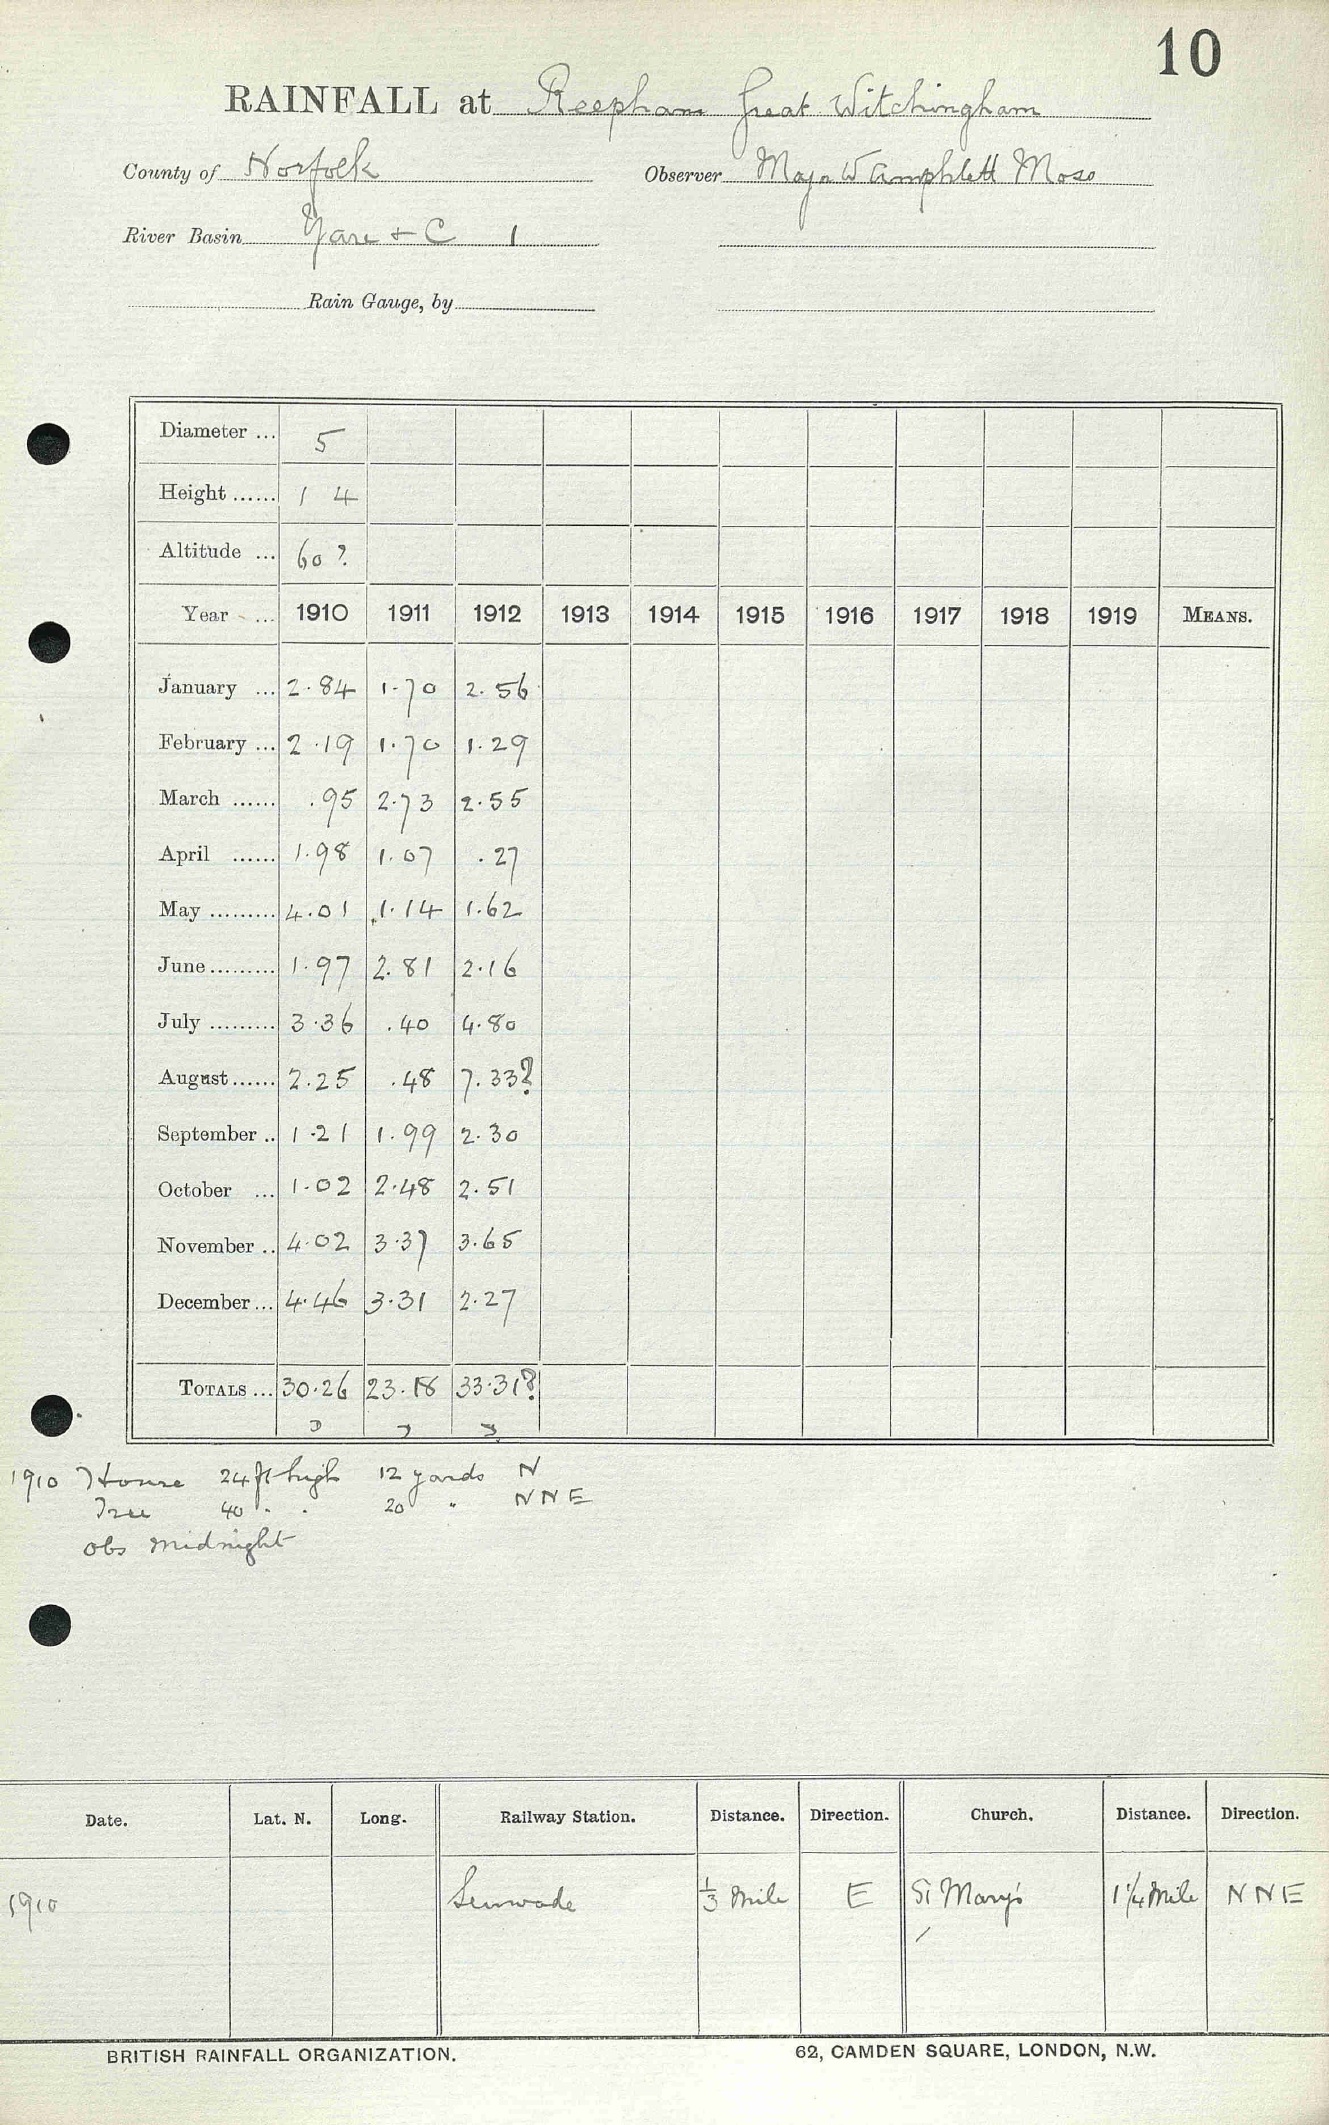 10
RAINFALL at Reepham Great Witchingham
County of Norfolk Observer Major W Amphlett Moss
River Basin Yare + C 1
Rain Gauge, by
Diameter ... 5
Height ...... 1 4
Altitude ... 60 ?
Year ... 1910 1911 1912 1913 1914 1915 1916 1917 1918 1919 MEANS.
January ... 2.84 1.70 2.56
February ... 2.19 1.70 1.29
March ...... .95 2.73 2.55
April ...... 1.98 1.07 .27
May ......... 4.01 1.14 1.62
June ......... 1.97 2.81 2.16
July ......... 3.36 .40 4.80
August ...... 2.25 .48 7.33?
September .. 1.21 1.99 2.30
October ... 1.02 2.48 2.51
November .. 4.02 3.37 3.65
December ... 4.46 3.31 2.27
TOTALS ... 30.26 23.18 33.31?
1910 House 24 ft high 12 yards N
Tree 40 " " 20 " NNE
obs midnight
Date. Lat. N. Long. Railway Station. Distance. Direction. Church. Distance. Direction.
1910 Lenwade 1/3 Mile E St Mary's 1 1/4 Mile NNE
BRITISH RAINFALL ORGANIZATION. 62, CAMDEN SQUARE, LONDON, N.W.